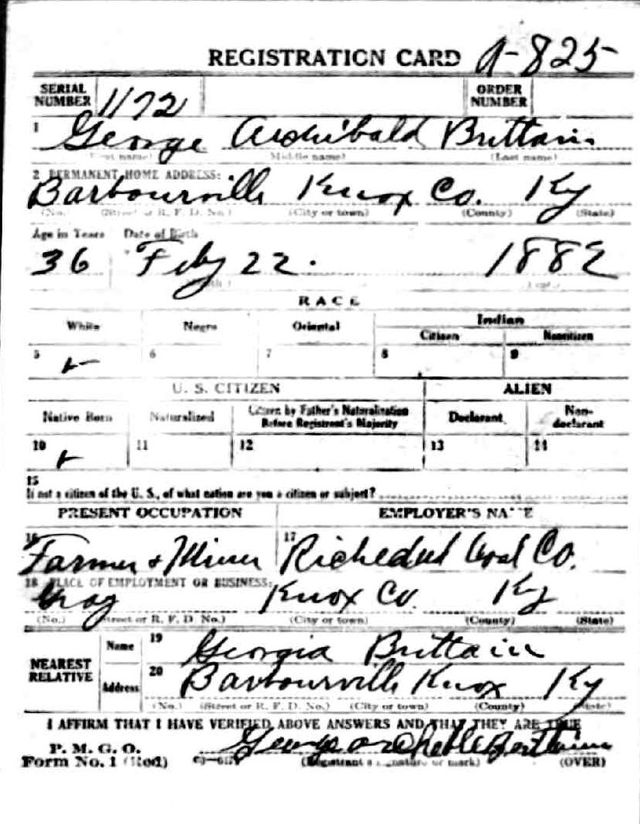 REGISTRATION CARD A-825
SERIAL NUMBER 1172 ORDER NUMBER
1 George Archibald Brittain
(First name) (Middle name) (Last name)
2 PERMANENT HOME ADDRESS:
Barbourville Knox Co. Ky
(No.) (Street or R. F. D. No.) (City or town) (County) (State)
Age in Years Date of Birth
36 Feby 22. 1882
RACE
White Negro Oriental Indian
Citizen Noncitizen
5 6 7 8 9
U. S. CITIZEN ALIEN
Native Born Naturalized Citizen by Father's Naturalization Before Registrant's Majority Declarant Non-declarant
10 11 12 13 14
15
If not a citizen of the U. S., of what nation are you a citizen or subject?
PRESENT OCCUPATION EMPLOYER'S NAME
16 17
Farmer & Miner Coal Co.
18 PLACE OF EMPLOYMENT OR BUSINESS:
Gray Knox Co Ky
(No.) (Street or R. F. D. No.) (City or town) (County) (State)
NEAREST RELATIVE Name 19 Georgia Brittain
Address 20 Barbourville Knox Ky
(No.) (Street or R. F. D. No.) (City or town) (County) (State)
I AFFIRM THAT I HAVE VERIFIED ABOVE ANSWERS AND THAT THEY ARE TRUE
P. M. G. O.
Form No. 1 (Red) (Registrant's signature or mark) (OVER)